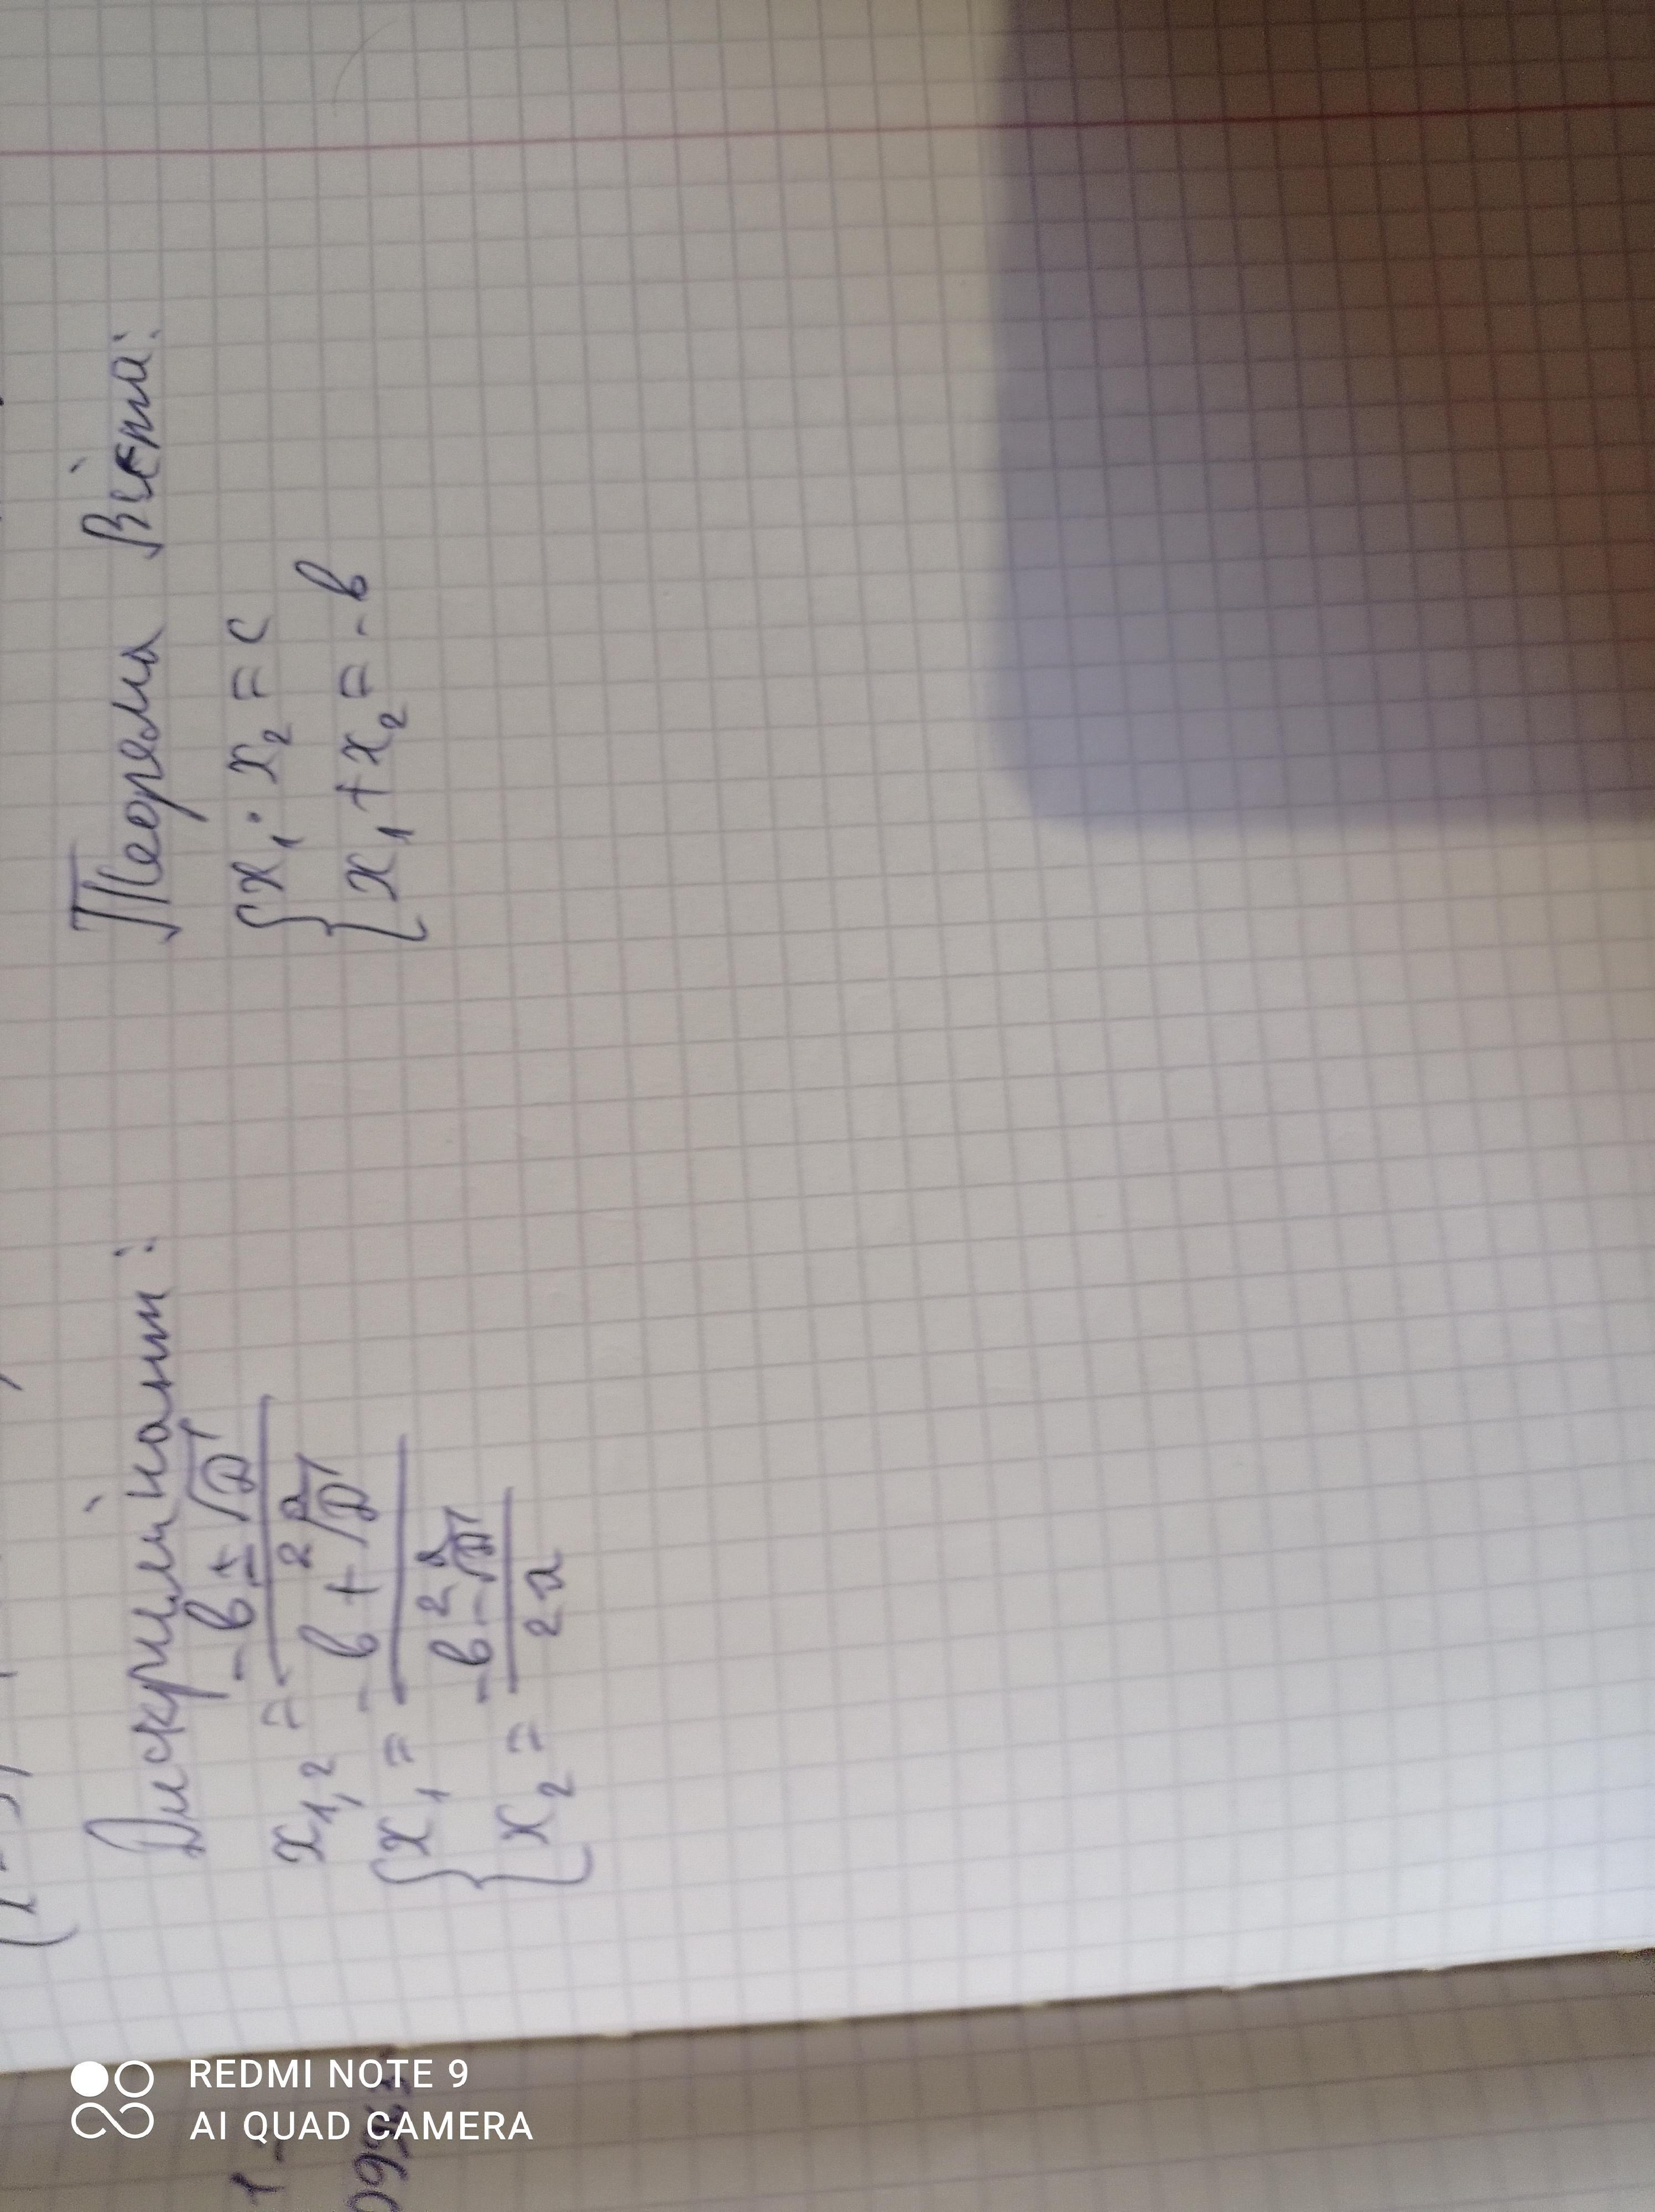 Дискримінант:
x1,2 = -в±√D / 2a
{x1 = -в+√D / 2a
{x2 = -в-√D / 2a
Теорема Вієта:
{x1 · x2 = c
{x1 + x2 = -в
REDMI NOTE 9
AI QUAD CAMERA